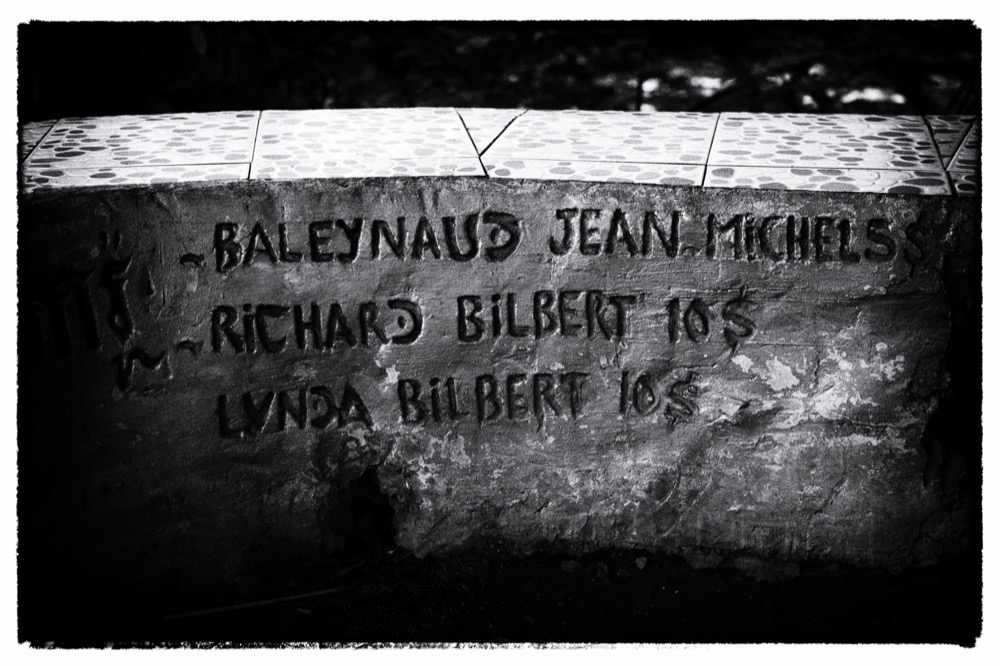 BALEYNAUD JEAN MICHEL 5 $
RiCHARD BiLBERT 10 $
LYNDA BiLBERT 10 $